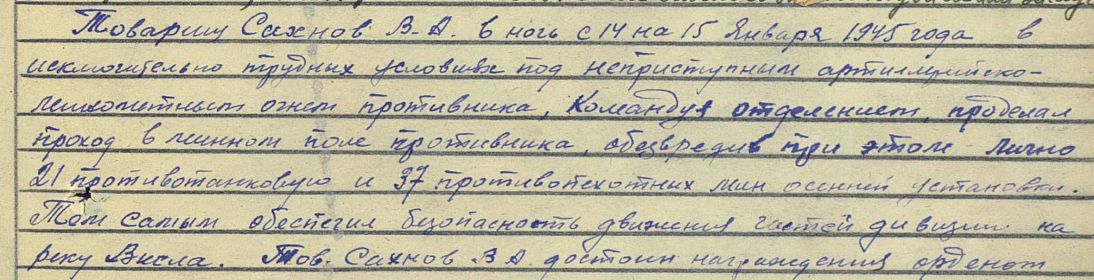 Товарищ Сахнов В.А. в ночь с 14 на 15 Января 1945 года в
исключительно трудных условиях под неприступным артиллерийско-
минометным огнем противника, командуя отделением, проделал
проход в минном поле противника, обезвредив при этом лично
21 противотанковую и 37 противопехотных мин осенней установки.
Тем самым обеспечил безопасность движения частей дивизии на
реку Висла. Тов. Сахнов В.А. достоин награждения орденом